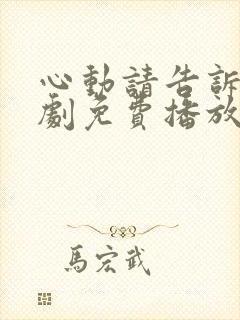 心動請告訴
劇免費播放
馬宏武